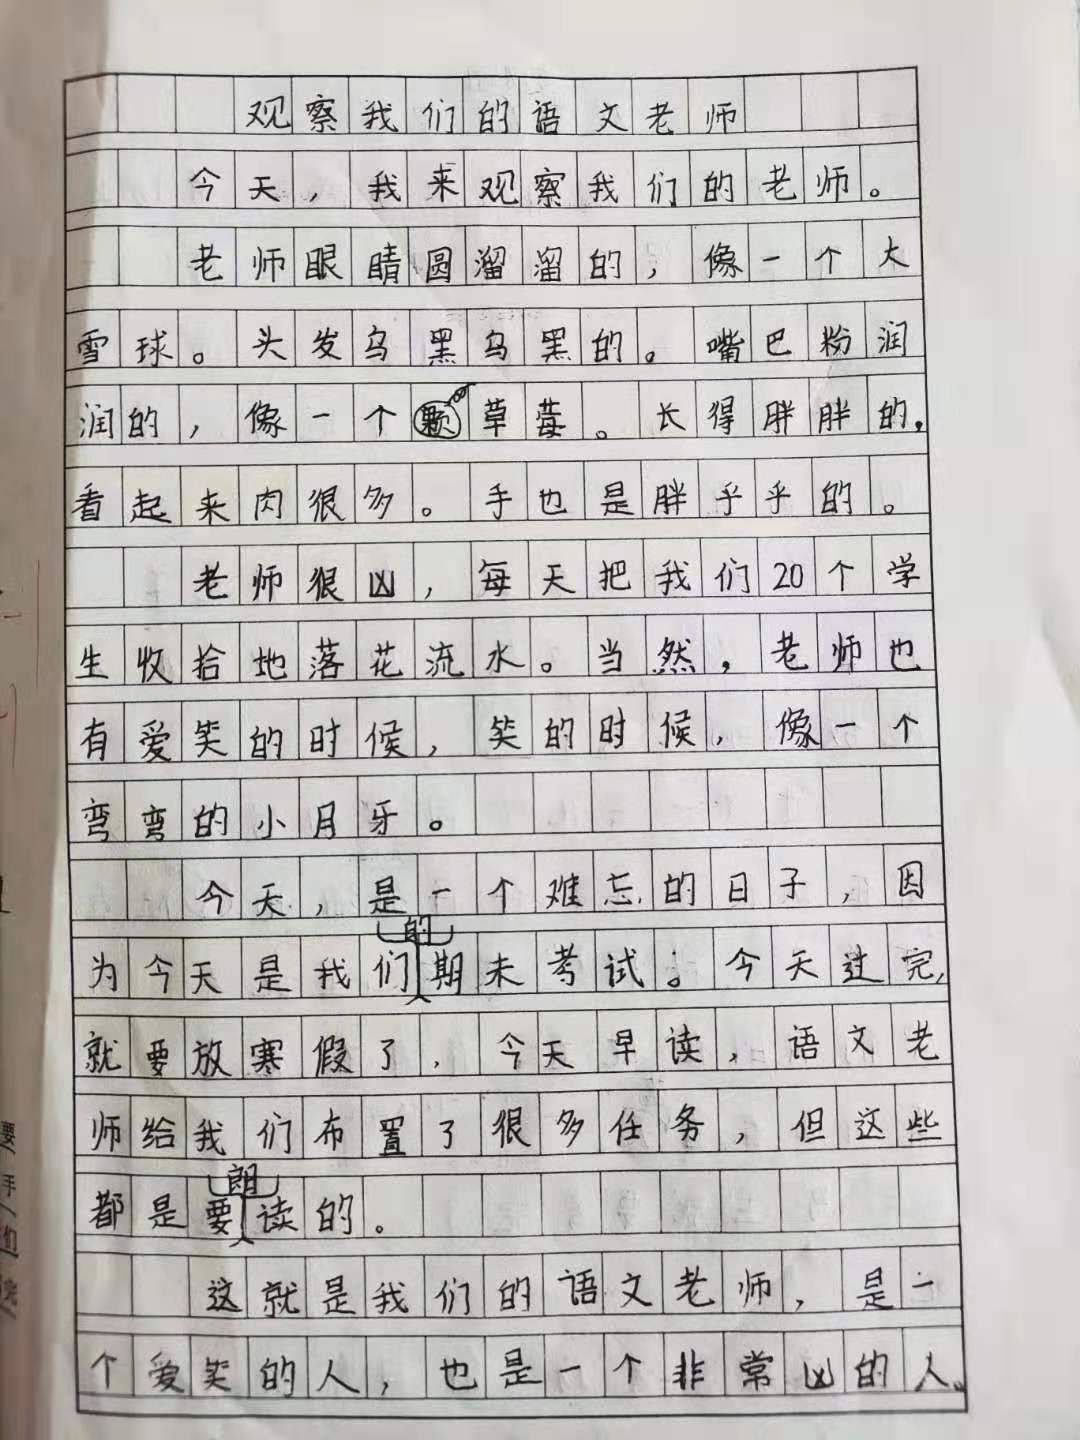 观察我们的语文老师
今天，我来观察我们的老师。
老师眼睛圆溜溜的，像一个大
雪球。头发乌黑乌黑的。嘴巴粉润
润的，像一个颗草莓。长得胖胖的，
看起来肉很多。手也是胖乎乎的。
老师很凶，每天把我们20个学
生收拾地落花流水。当然，老师也
有爱笑的时候，笑的时候，像一个
弯弯的小月牙。
今天，是一个难忘的日子，因
为今天是我们的期末考试。今天过完，
就要放寒假了，今天早读，语文老
师给我们布置了很多任务，但这些
都是要朗读的。
这就是我们的语文老师，是一
个爱笑的人，也是一个非常凶的人。